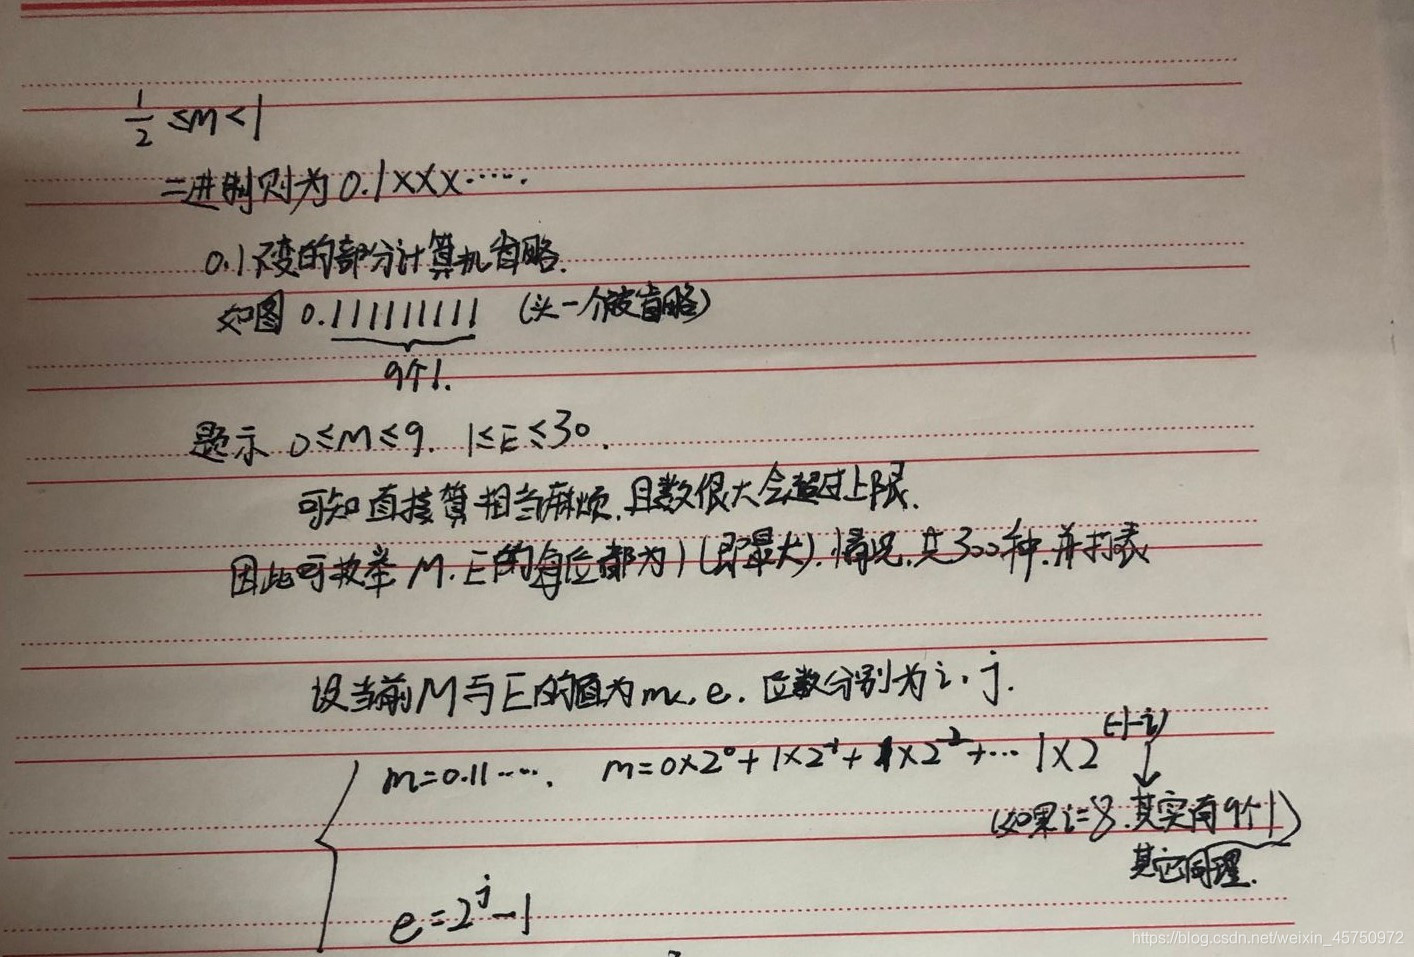 1/2 ≤M<1
二进制则为0.1XXX……
0.1不变的部分计算机省略.
如图 0.1111111111 (头一个被省略)
9个1.
题示 0≤M≤9. 1≤E≤30.
可知直接算相当麻烦,且数很大会超过上限.
因此可枚举M.E的每位都为1(即最大).情况,共300种.并打表
设当前M与E的值为m,e. 位数分别为i,j.
m=0.11…. m=0×2^0+1×2^-1+1×2^-2+…1×2^(-1-i)
(如果i=8.其实有9个1)
其它同理.
e=2^j-1
https://blog.csdn.net/weixin_45750972